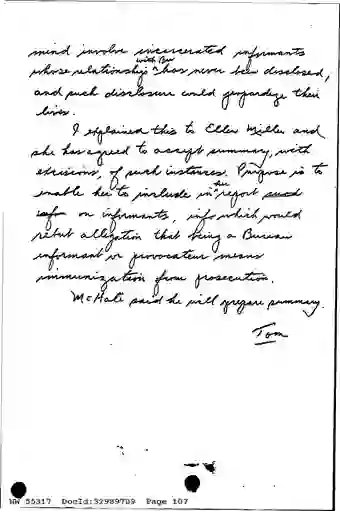 mind involve incarcerated informants
with Bu
whose relationship ^ has never been disclosed,
and such disclosure could jeopardize their
lives.
I explained this to Ellen Miller and
she has agreed to accept summary, with
excisions, of such instances. Purpose is to
enable her to include in her report such
info on informants, info which would
rebut allegation that being a Bureau
informant or provocateur means
immunization from prosecution.
McHale said he will prepare summary.
Tom
NW 55317 DocId:32989709 Page 107